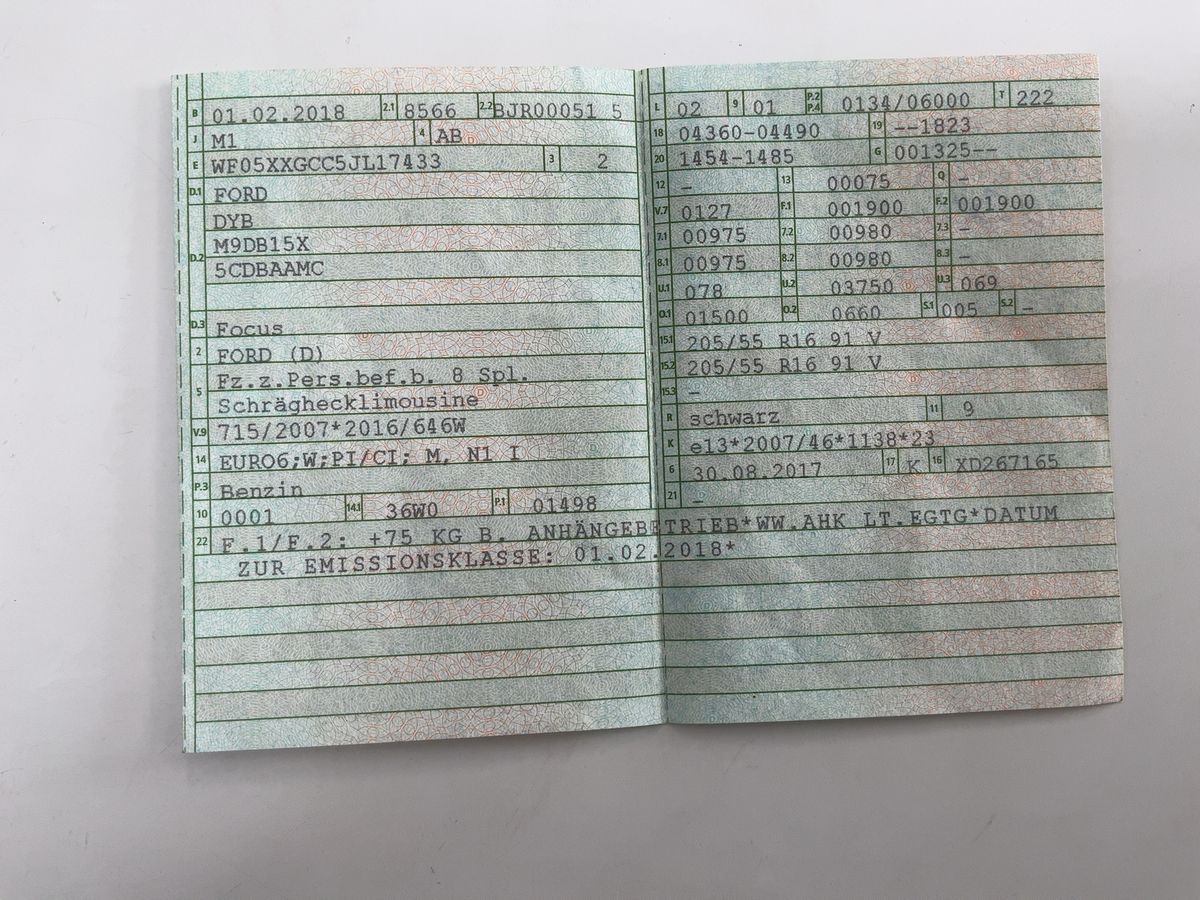 B 01.02.2018 2.1 8566 2.2 BJR00051 5
J M1 4 AB
E WF05XXGCC5JL17433 3 2
D.1 FORD
DYB
D.2 M9DB15X
5CDBAAMC
D.3 Focus
2 FORD (D)
5 Fz.z.Pers.bef.b. 8 Spl.
Schräghecklimousine
V.9 715/2007*2016/646W
14 EURO6;W;PI/CI; M, N1 I
P.3 Benzin
10 0001 14.1 36W0 P.1 01498
L 02 9 01 P.2 P.4 0134/06000 T 222
18 04360-04490 19 --1823
20 1454-1485 G 001325--
12 - 13 00075 Q -
V.7 0127 F.1 001900 F.2 001900
7.1 00975 7.2 00980 7.3 -
8.1 00975 8.2 00980 8.3 -
U.1 078 U.2 03750 U.3 069
O.1 01500 O.2 0660 S.1 005 S.2 -
15.1 205/55 R16 91 V
15.2 205/55 R16 91 V
15.3 -
R schwarz 11 9
K e13*2007/46*1138*23
6 30.08.2017 17 K 16 XD267165
21 -
22 F.1/F.2: +75 KG B. ANHÄNGEBETRIEB*WW.AHK LT.EGTG*DATUM
ZUR EMISSIONSKLASSE: 01.02.2018*